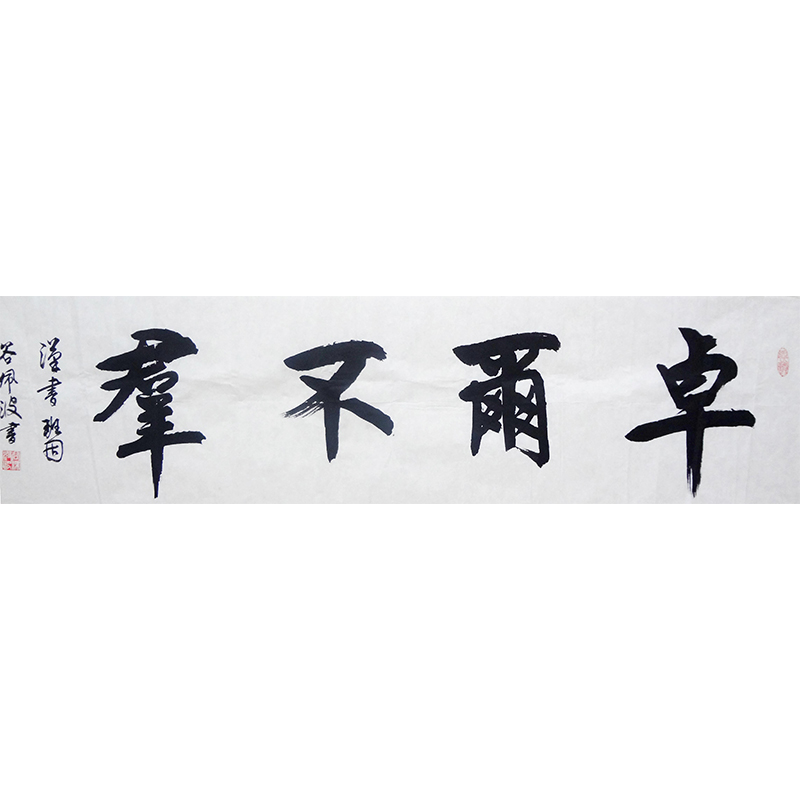 卓爾不羣
漢書班固
谷佩波書